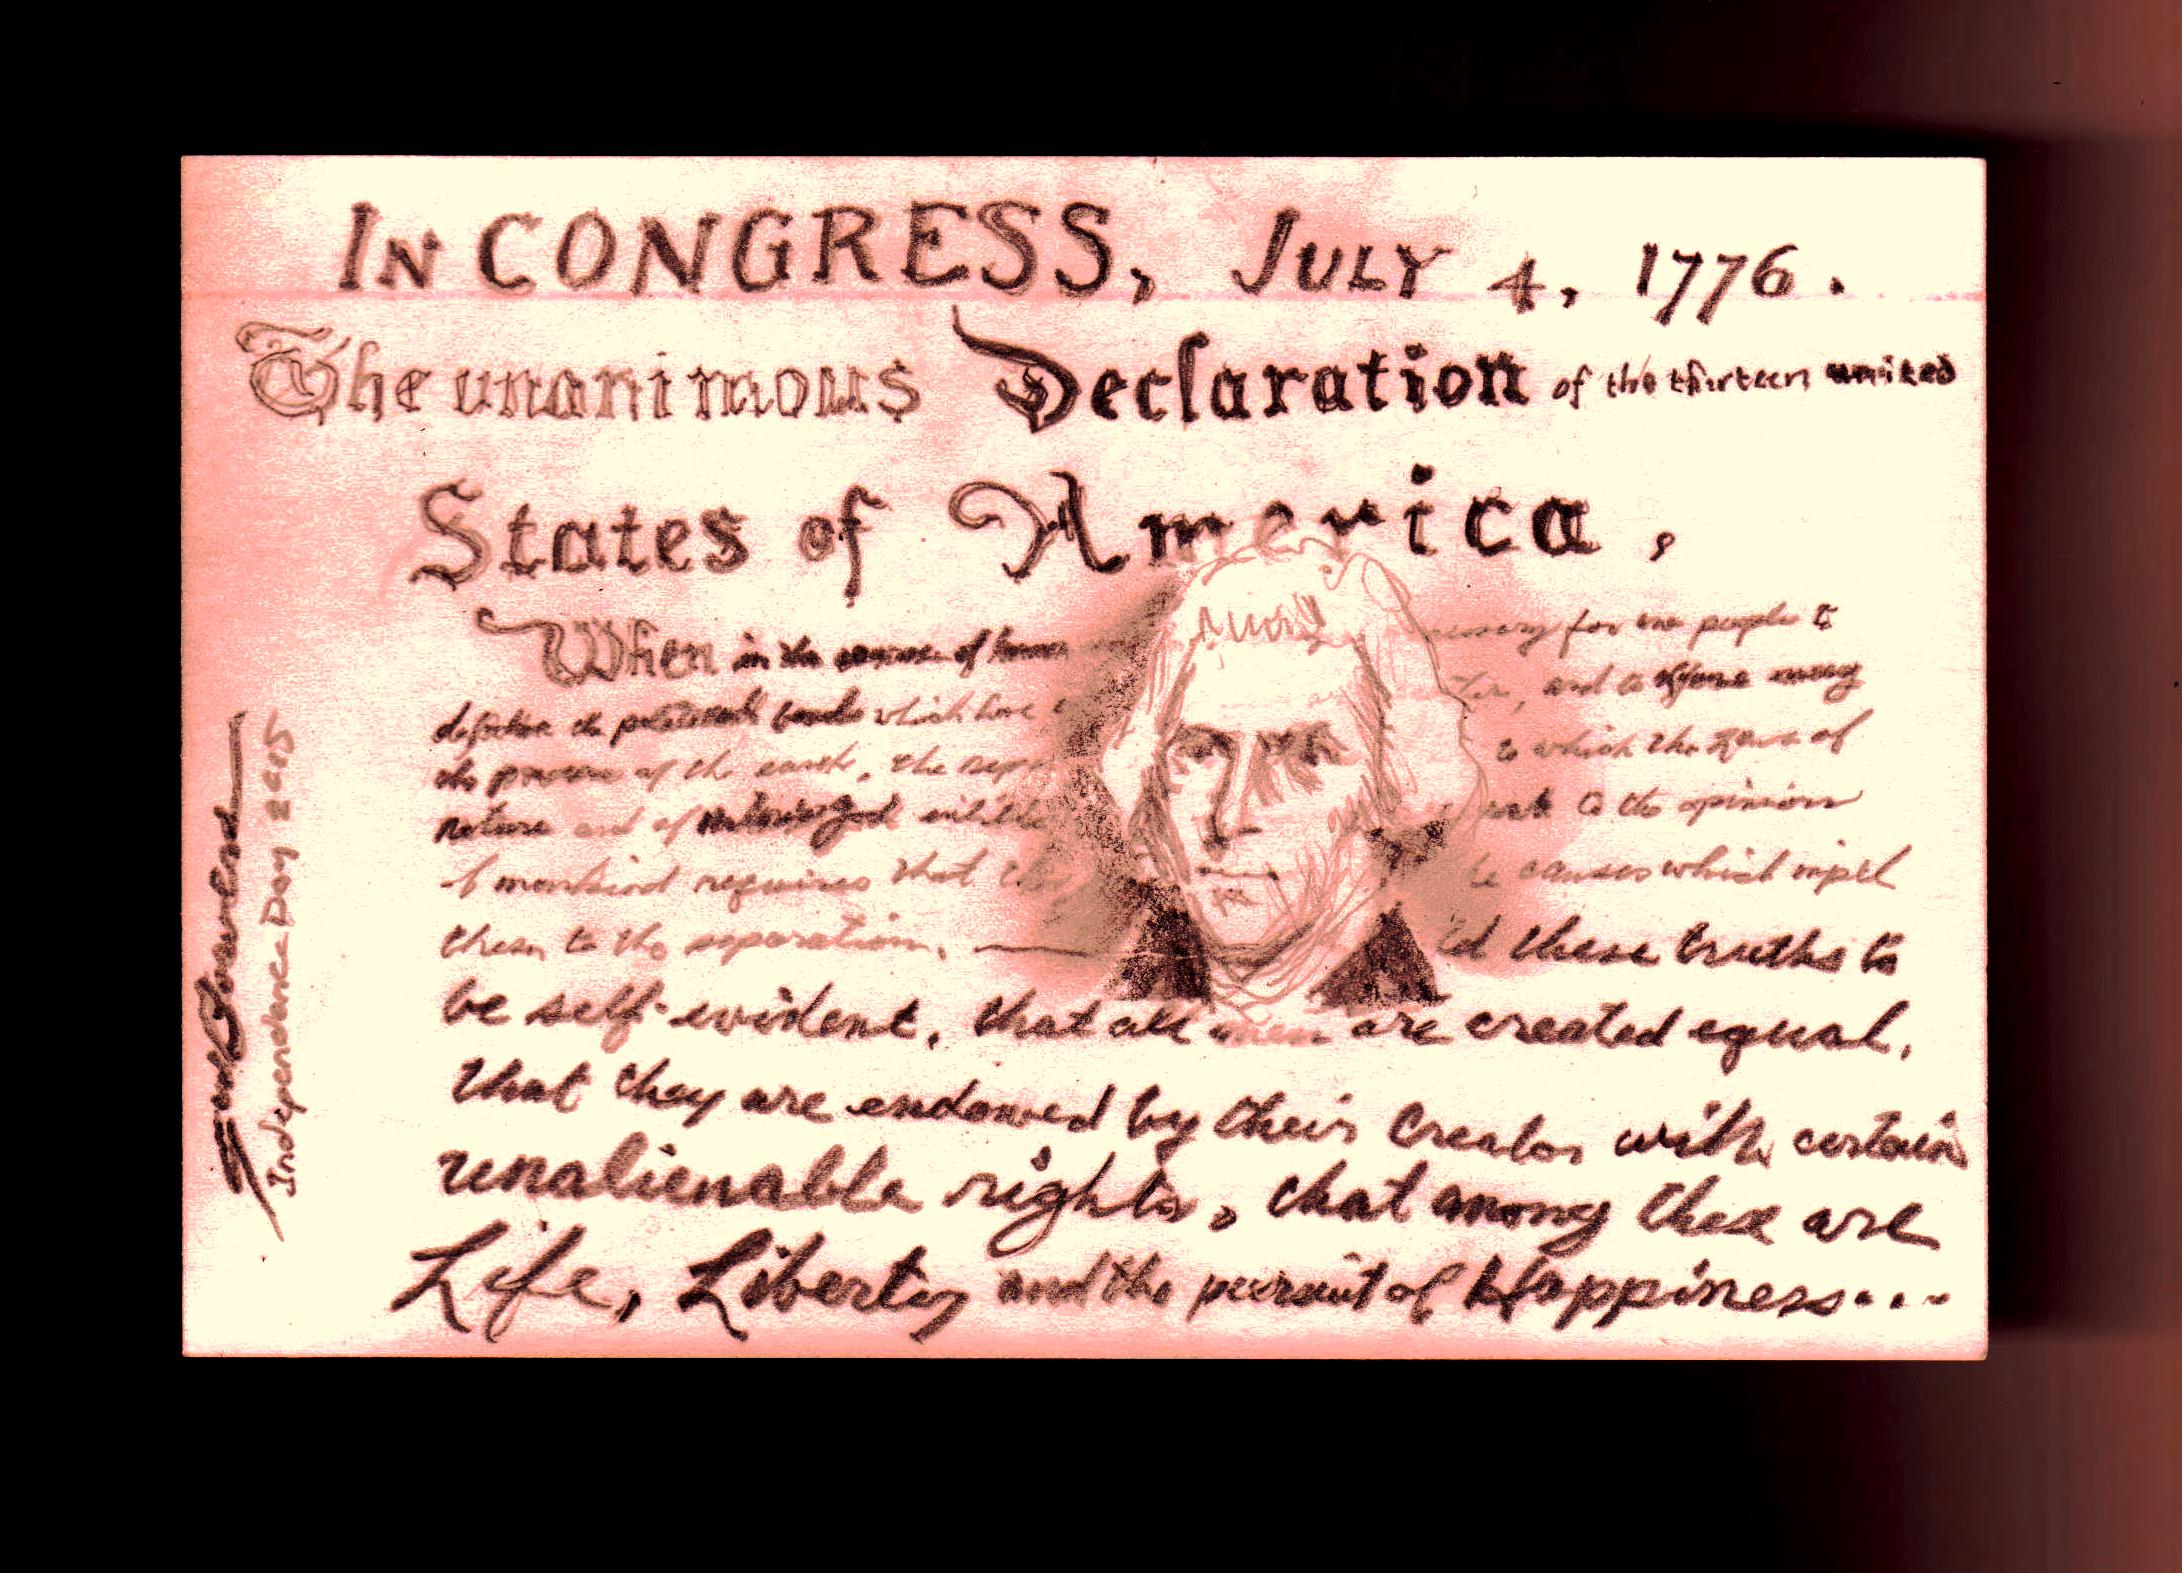 IN CONGRESS, JULY 4, 1776.
The unanimous Declaration of the thirteen united
States of America,
When in the course of human for one people to
the political bands which have and to assume among
the powers of the earth, the to which the laws of
nature and of to the opinion
of mankind requires that they causes which impel
them to the separation. — these truths to
be self-evident, that all men are created equal,
that they are endowed by their Creator with certain
unalienable rights, that among these are
Life, Liberty and the pursuit of Happiness...
Independence Day